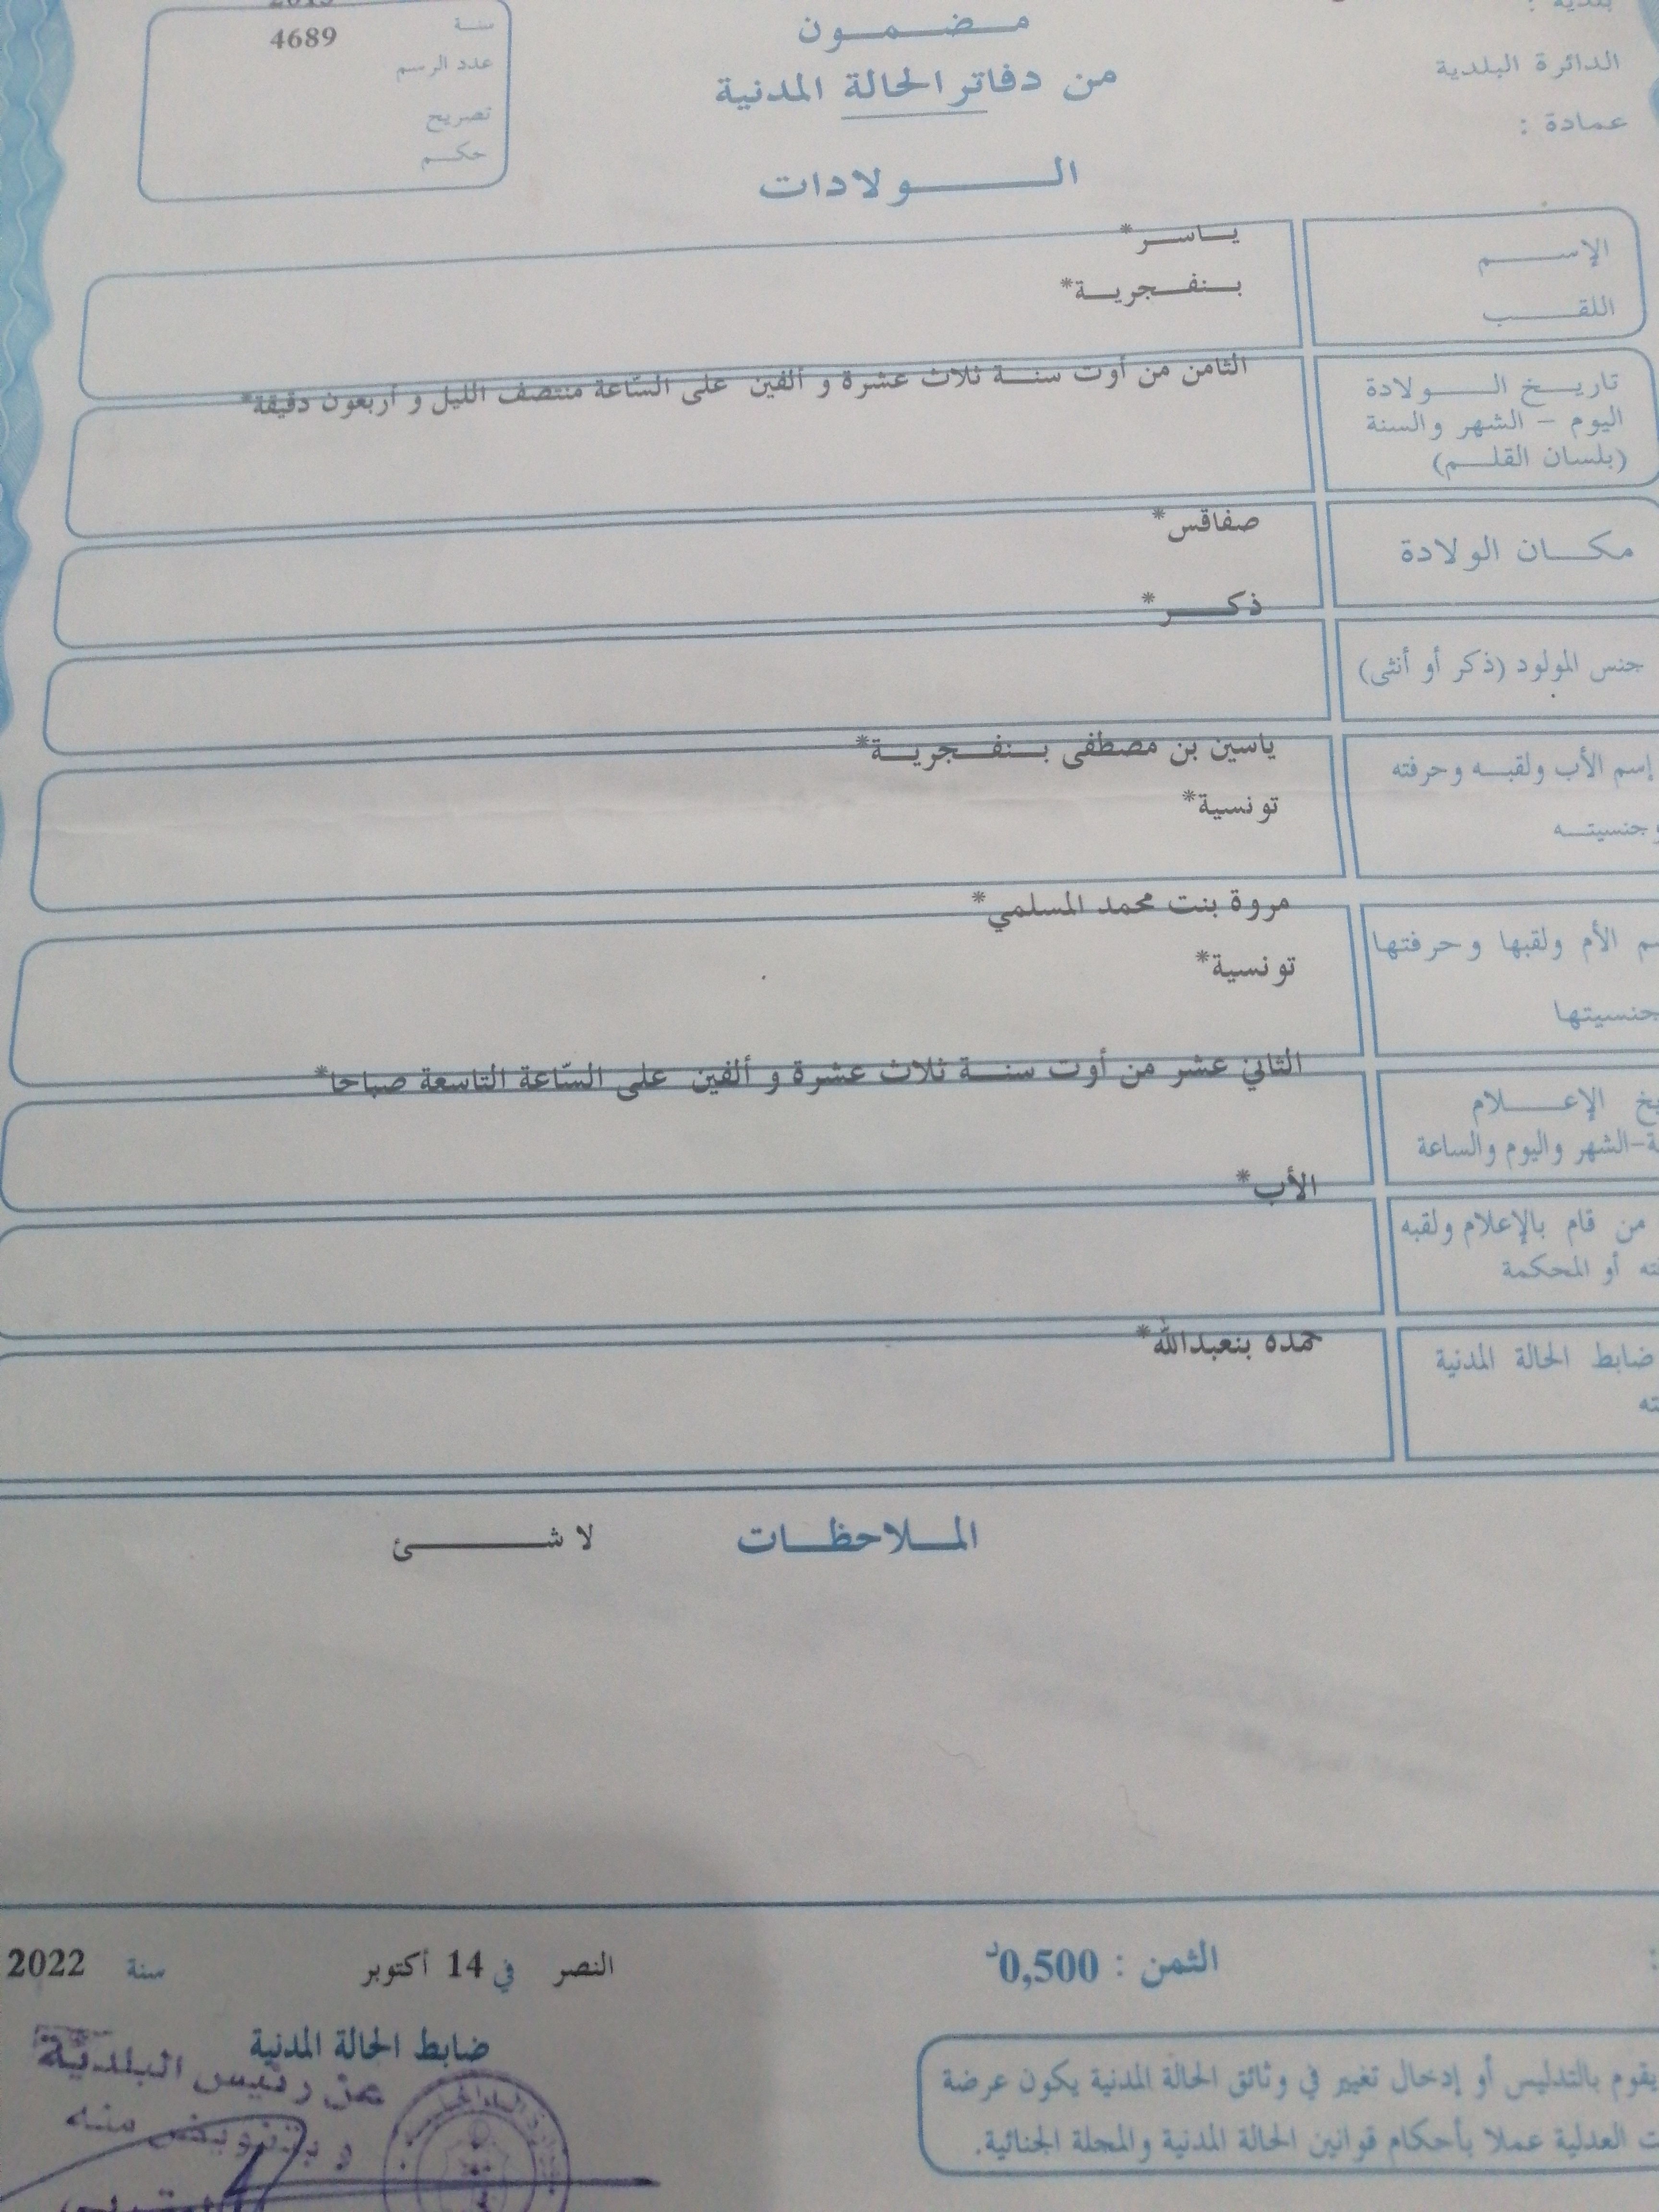 بلدية :
الدائرة البلدية
عمادة :
مضمون
من دفاتر الحالة المدنية
الولادات
2013
سنة
4689
عدد الرسم
تصريح
حكم
الإسم
ياسر*
اللقب
بنفجرية*
تاريخ الولادة
اليوم - الشهر والسنة
(بلسان القلم)
الثامن من أوت سنة ثلاث عشرة و ألفين على السّاعة منتصف الليل و أربعون دقيقة*
مكان الولادة
صفاقس*
جنس المولود (ذكر أو أنثى)
ذكر*
إسم الأب ولقبه وحرفته
وجنسيته
ياسين بن مصطفى بنفجرية*
تونسية*
الأم ولقبها وحرفتها
جنسيتها
مروة بنت محمد المسلمي*
تونسية*
الإعلام
الشهر واليوم والساعة
الثاني عشر من أوت سنة ثلاث عشرة و ألفين على السّاعة التاسعة صباحا*
من قام بالإعلام ولقبه
أو المحكمة
الأب*
ضابط الحالة المدنية
حمده بنعبدالله*
الملاحظات
لا شئ
الثمن : 0,500د
النصر في 14 أكتوبر سنة 2022
ضابط الحالة المدنية
عن رئيس البلدية
و بتفويض منه
يقوم بالتدليس أو إدخال تغيير في وثائق الحالة المدنية يكون عرضة
العدلية عملا بأحكام قوانين الحالة المدنية والمجلة الجنائية.